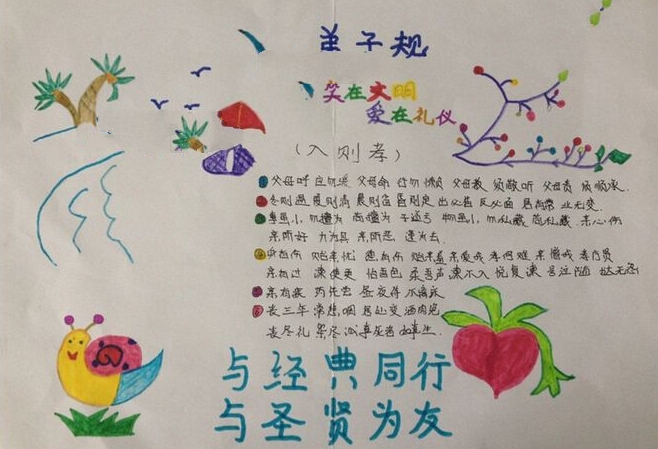 弟子规
笑在文明
爱在礼仪
(入则孝)
父母呼 应勿缓 父母命 行勿懒 父母教 须敬听 父母责 须顺承.
冬则温 夏则凊 晨则省 昏则定 出必告 反必面 居有常 业无变.
事虽小 勿擅为 苟擅为 子道亏 物虽小 勿私藏 苟私藏 亲心伤
亲所好 力为具 亲所恶 谨为去.
身有伤 贻亲忧 德有伤 贻亲羞 亲爱我 孝何难 亲憎我 孝
亲有过 谏使更 怡吾色 柔吾声 谏不入 悦复谏 号泣随 挞无怨
亲有疾 药先尝 昼夜侍 不离床
丧三年 常悲咽 居处变 酒肉绝
丧尽礼 祭尽诚 事死者 如事生.
与经典同行
与圣贤为友